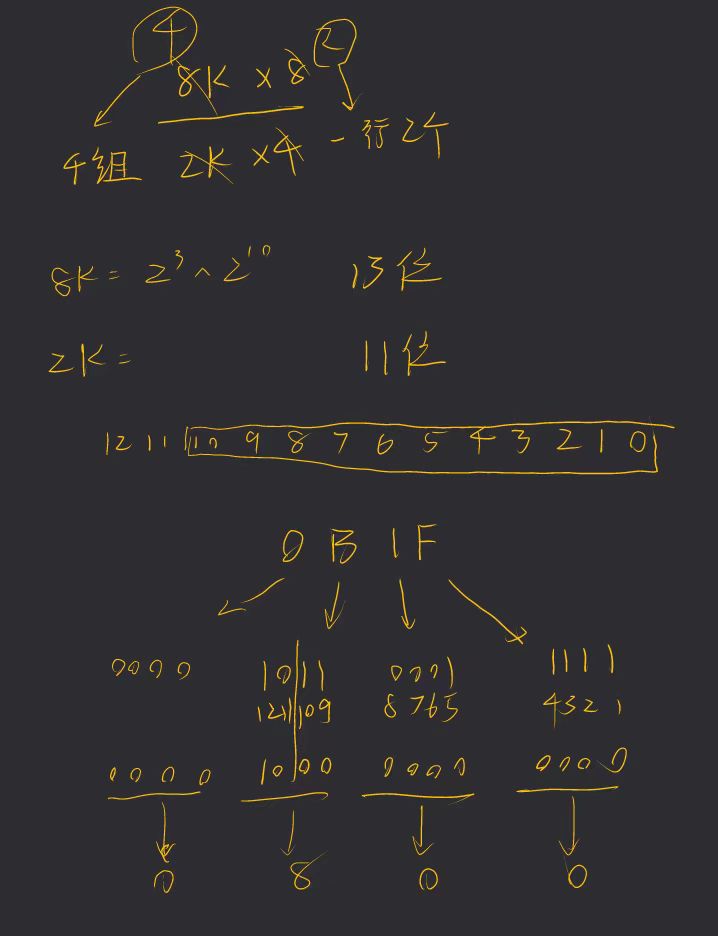 4 2
8K × 8
4组 2K ×4 一行2个
8K = 2³ × 2¹⁰ 13位
2K = 11位
12 11 10 9 8 7 6 5 4 3 2 1 0
0 B 1 F
0000 1011 0001 1111
12 11 10 9 8 7 6 5 4 3 2 1
0000 1000 0000 0000
0 8 0 0